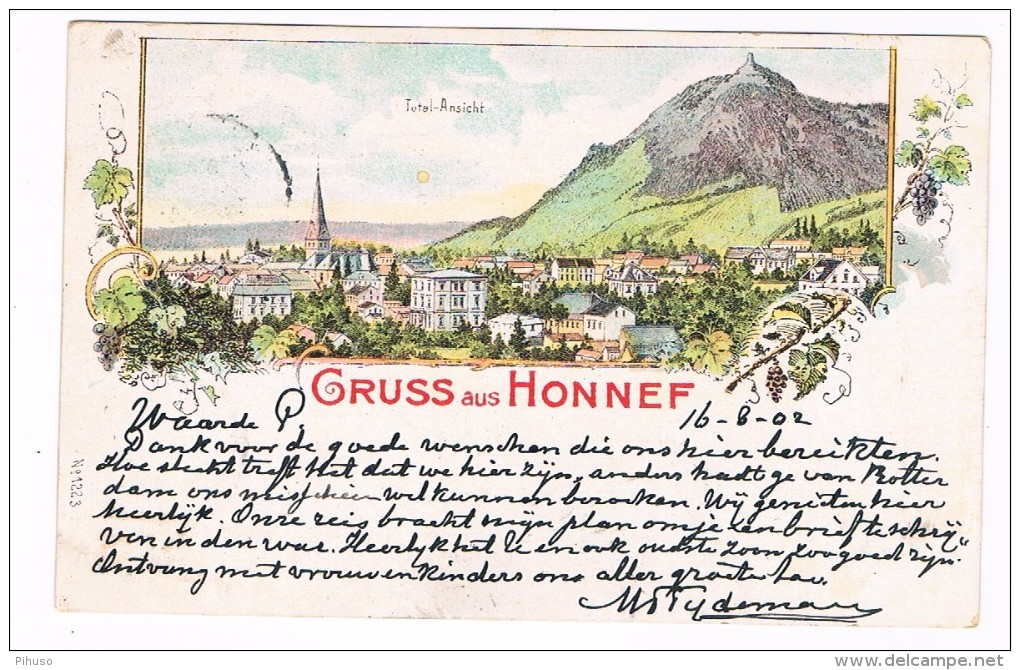 Total-Ansicht
GRUSS aus HONNEF
Waarde P. 16-8-02
Dank voor de goede wenschen die ons hier bereikten.
Hoe slecht treft het dat we hier zijn, anders hadt ge van Rotter
dam ons misschien wel kunnen bezoeken. Wij genieten hier
heerlijk. Onze reis bracht mijn plan om je een brief te schrij"
ven in den war. Heerlijk het U en ook oudste zoon zoo goed zijn.
Ontvang met vrouw en kinders ons aller groete. Uw.
Tydeman
No 1223
Pihuso
www.delcampe.net